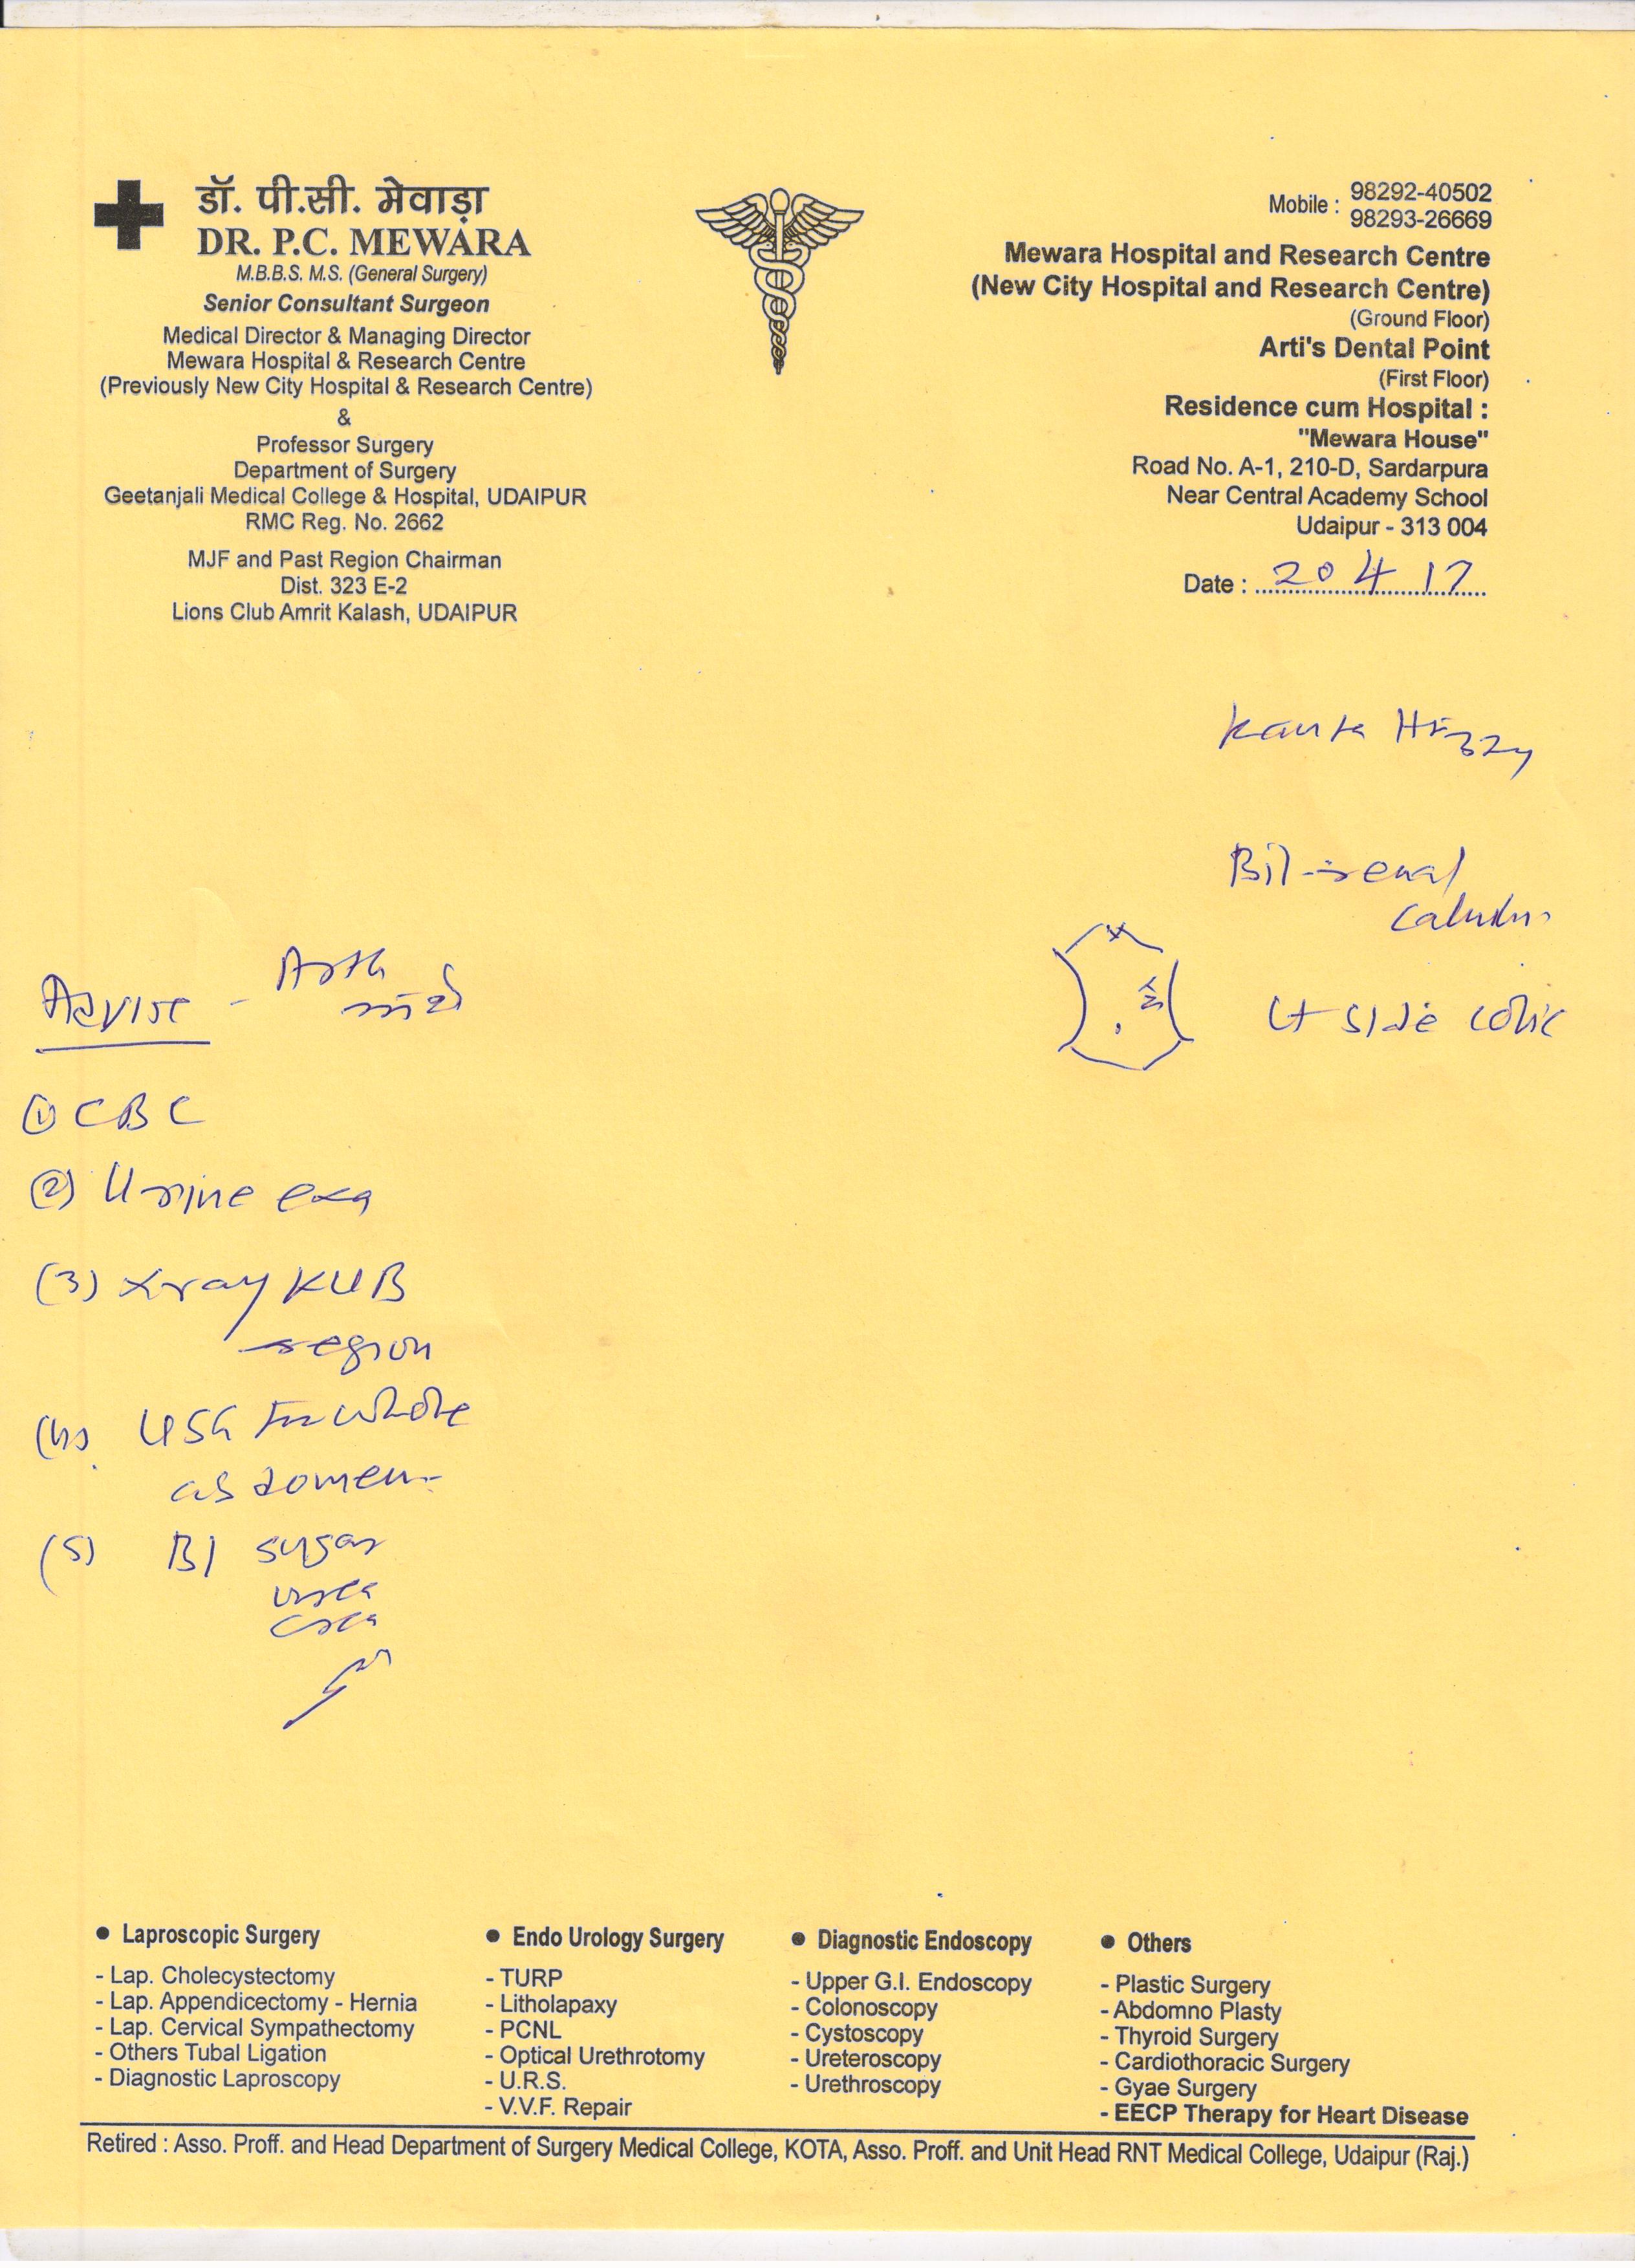 डॉ. पी.सी. मेवाड़ा
DR. P.C. MEWARA
M.B.B.S. M.S. (General Surgery)
Senior Consultant Surgeon
Medical Director & Managing Director
Mewara Hospital & Research Centre
(Previously New City Hospital & Research Centre)
&
Professor Surgery
Department of Surgery
Geetanjali Medical College & Hospital, UDAIPUR
RMC Reg. No. 2662
MJF and Past Region Chairman
Dist. 323 E-2
Lions Club Amrit Kalash, UDAIPUR
Mobile : 98292-40502
98293-26669
Mewara Hospital and Research Centre
(New City Hospital and Research Centre)
(Ground Floor)
Arti's Dental Point
(First Floor)
Residence cum Hospital :
"Mewara House"
Road No. A-1, 210-D, Sardarpura
Near Central Academy School
Udaipur - 313 004
Date : 20 4 17
Kanta
Bil-renal
Lt side colic
Advise - Arth
(1) CBC
(2) Urine exa
(3) Xray KUB
region
(4) USG for whole
abdomen
(5) Bl sugar
urea
crea
● Laproscopic Surgery
- Lap. Cholecystectomy
- Lap. Appendicectomy - Hernia
- Lap. Cervical Sympathectomy
- Others Tubal Ligation
- Diagnostic Laproscopy
● Endo Urology Surgery
- TURP
- Litholapaxy
- PCNL
- Optical Urethrotomy
- U.R.S.
- V.V.F. Repair
● Diagnostic Endoscopy
- Upper G.I. Endoscopy
- Colonoscopy
- Cystoscopy
- Ureteroscopy
- Urethroscopy
● Others
- Plastic Surgery
- Abdomno Plasty
- Thyroid Surgery
- Cardiothoracic Surgery
- Gyae Surgery
- EECP Therapy for Heart Disease
Retired : Asso. Proff. and Head Department of Surgery Medical College, KOTA, Asso. Proff. and Unit Head RNT Medical College, Udaipur (Raj.)